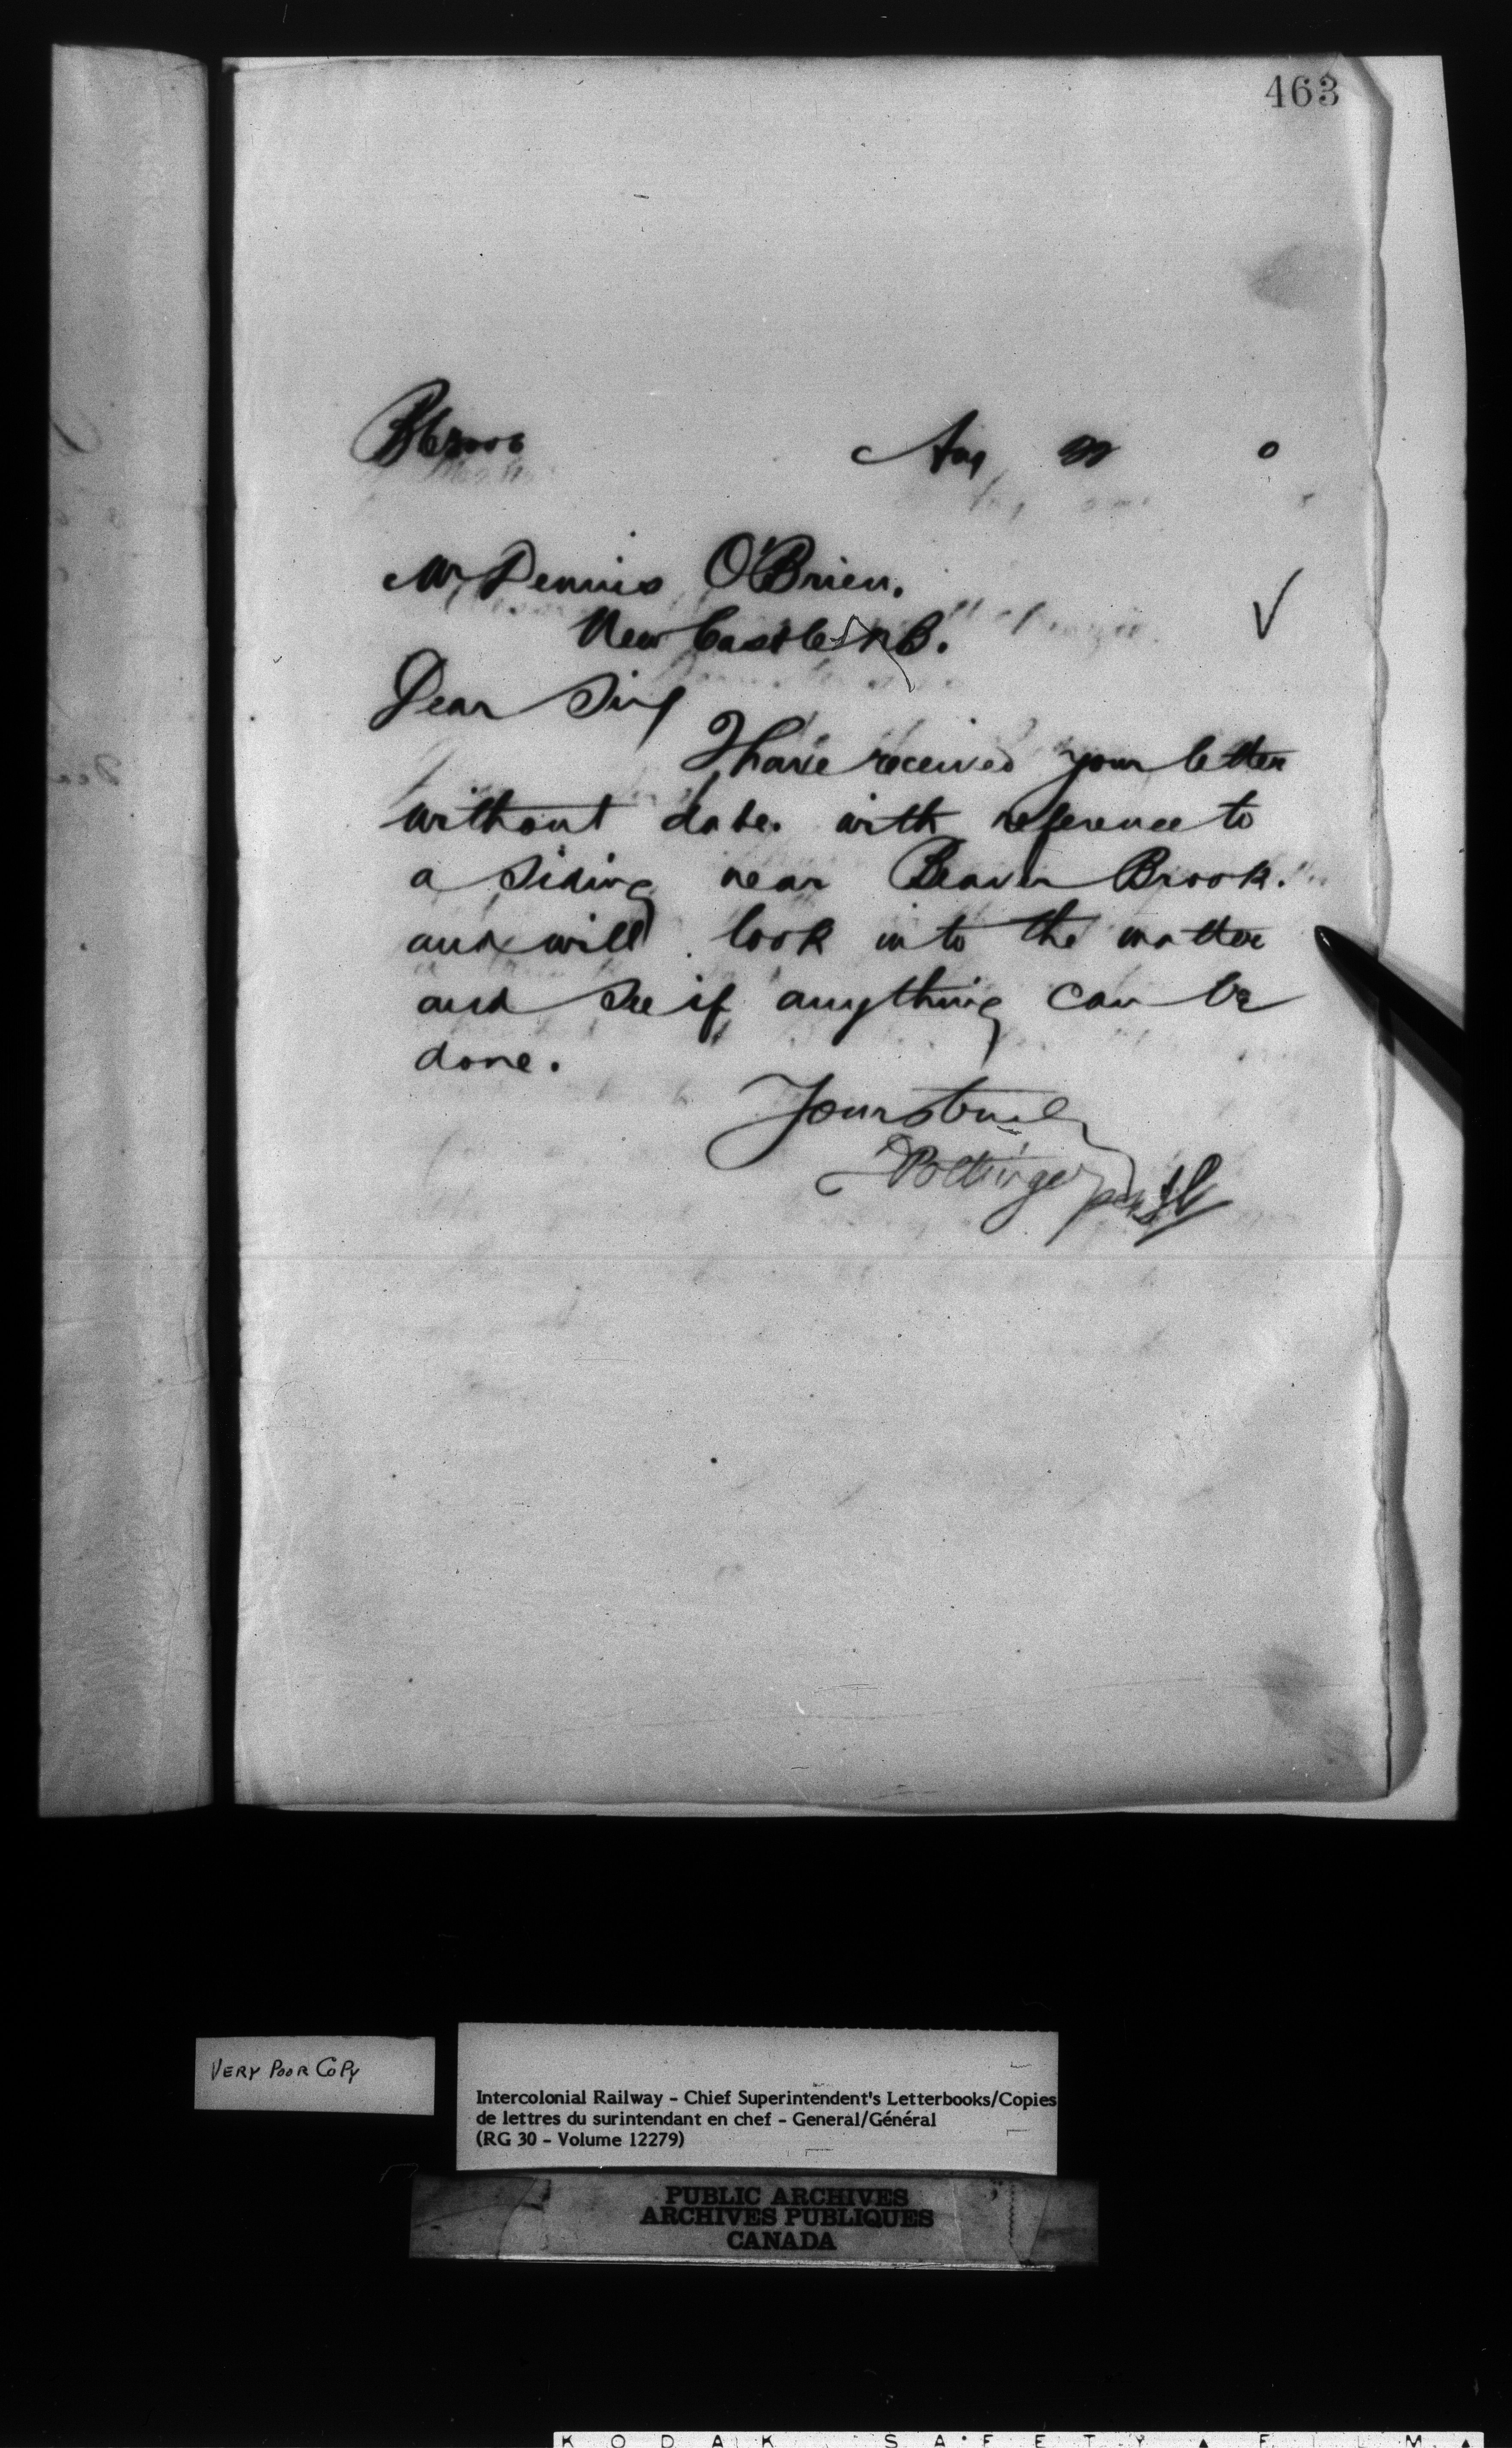 463
Aug 22 0
Mr Dennis O'Brien.
New Castle N.B.
Dear Sir
I have received your letter
without date. with reference to
a siding near Beaver Brook.
and will look into the matter
and see if anything can be
done.
Yours truly
Pottinger
VERY POOR COPY
Intercolonial Railway - Chief Superintendent's Letterbooks/Copies
de lettres du surintendant en chef - General/Général
(RG 30 - Volume 12279)
PUBLIC ARCHIVES
ARCHIVES PUBLIQUES
CANADA
KODAK SAFETY FILM